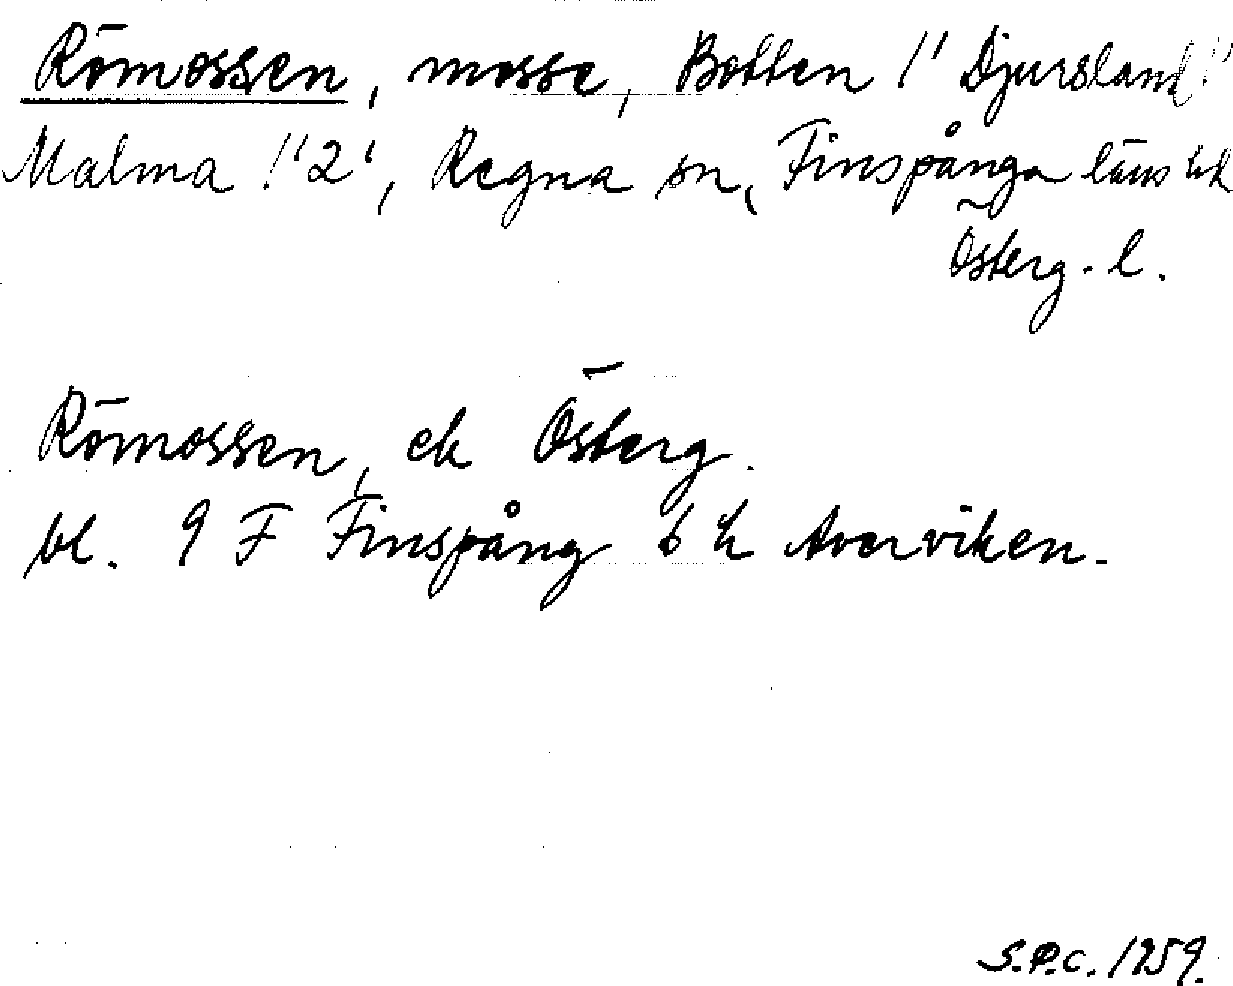 Römossen, mosse, Botten 1' Djursland 1'
Malma 1'2', Regna sn, Finspånga läns hd
Österg. l.
Römossen, ek Österg.
bl. 9 F Finspång 6 h Averviken.
S.P.C. 1959.